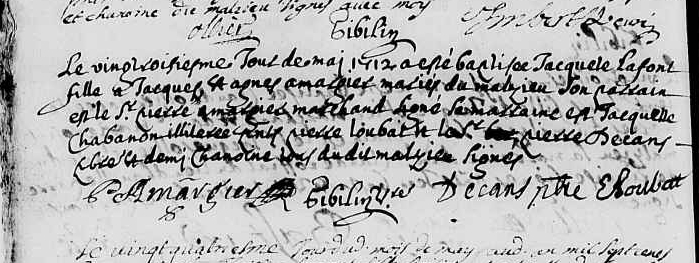 et chanoine du malzieu signés avec moy
ollier Gibilin Imbert
Le vingtroisiesme Jour de mai 1712 a esté baptisee Jacquele Lafont
fille a Jacques et agnes amargier mariés du malzieu son parrain
est le Sr pierre amargier marchand signé sa marraine est Jacquelle
Chabanon illiteree pnts pierre Loubat et le Sr pierre Decans
pbre et demi chanoine tous du dit malzieu signés
P Amargier Gibilin vre Decans ptre Loubat
Le vingt quatriesme Jour du mois de may aud an mil sept cens